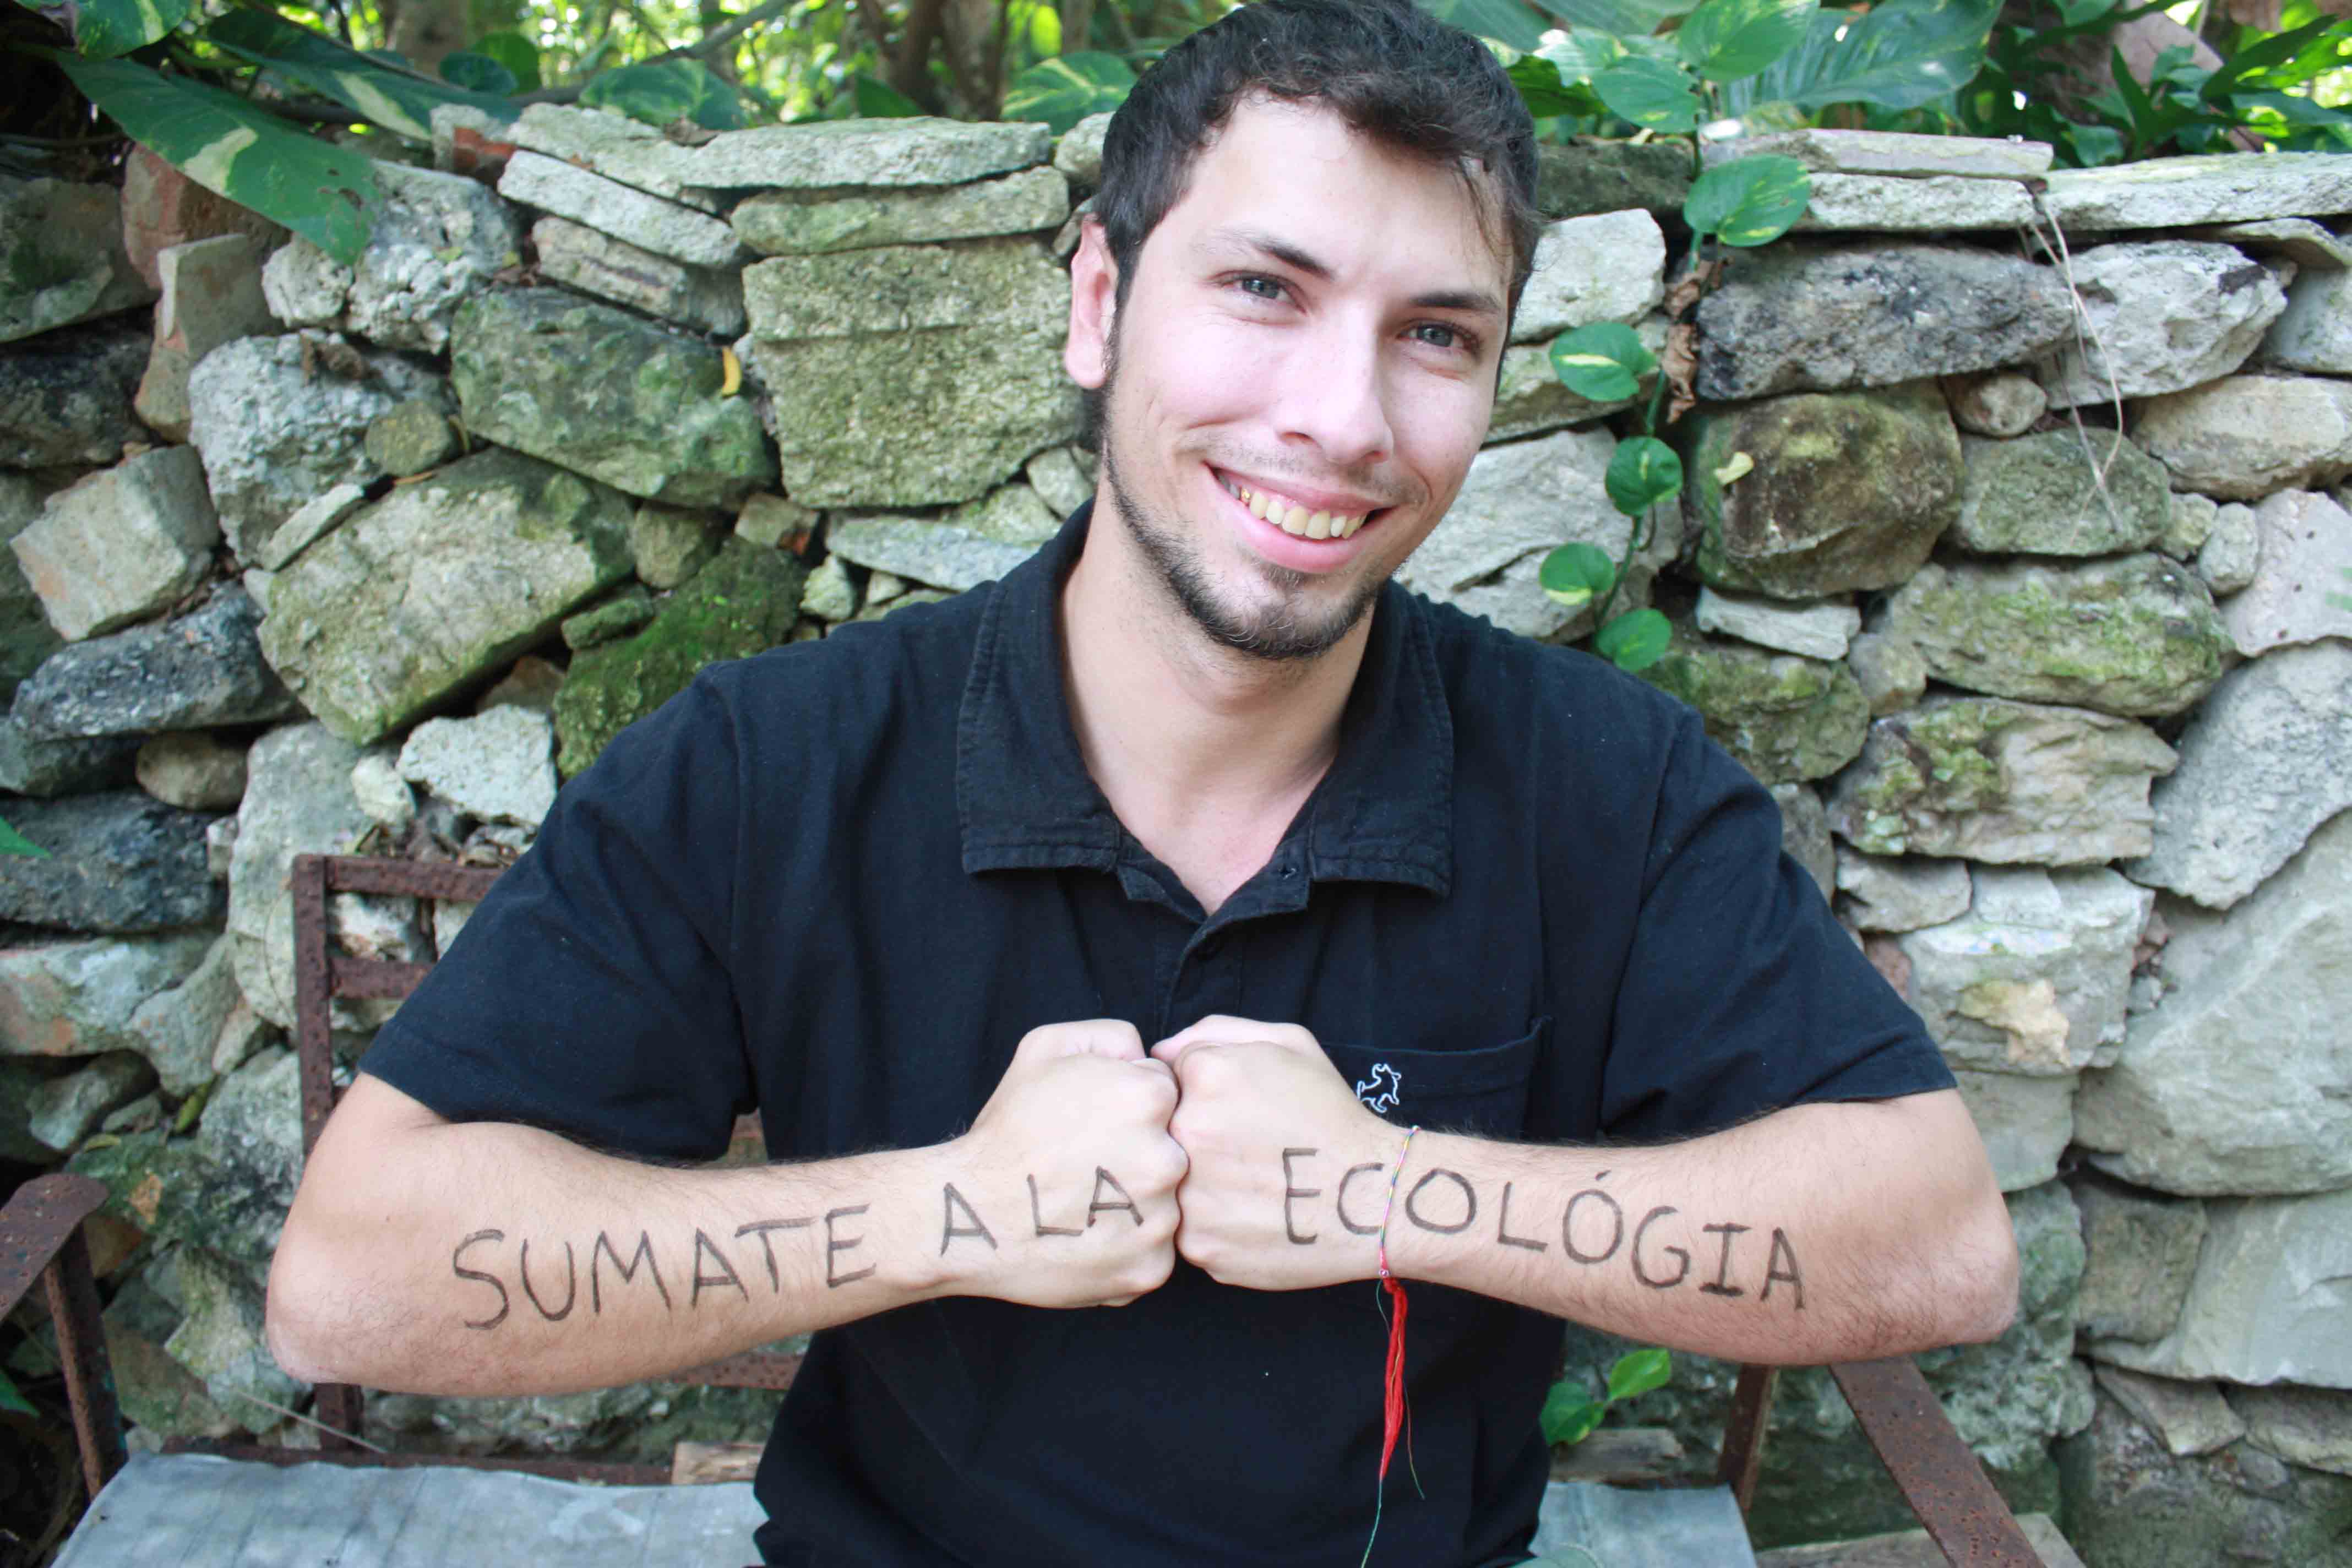 SUMATE A LA ECOLÓGIA